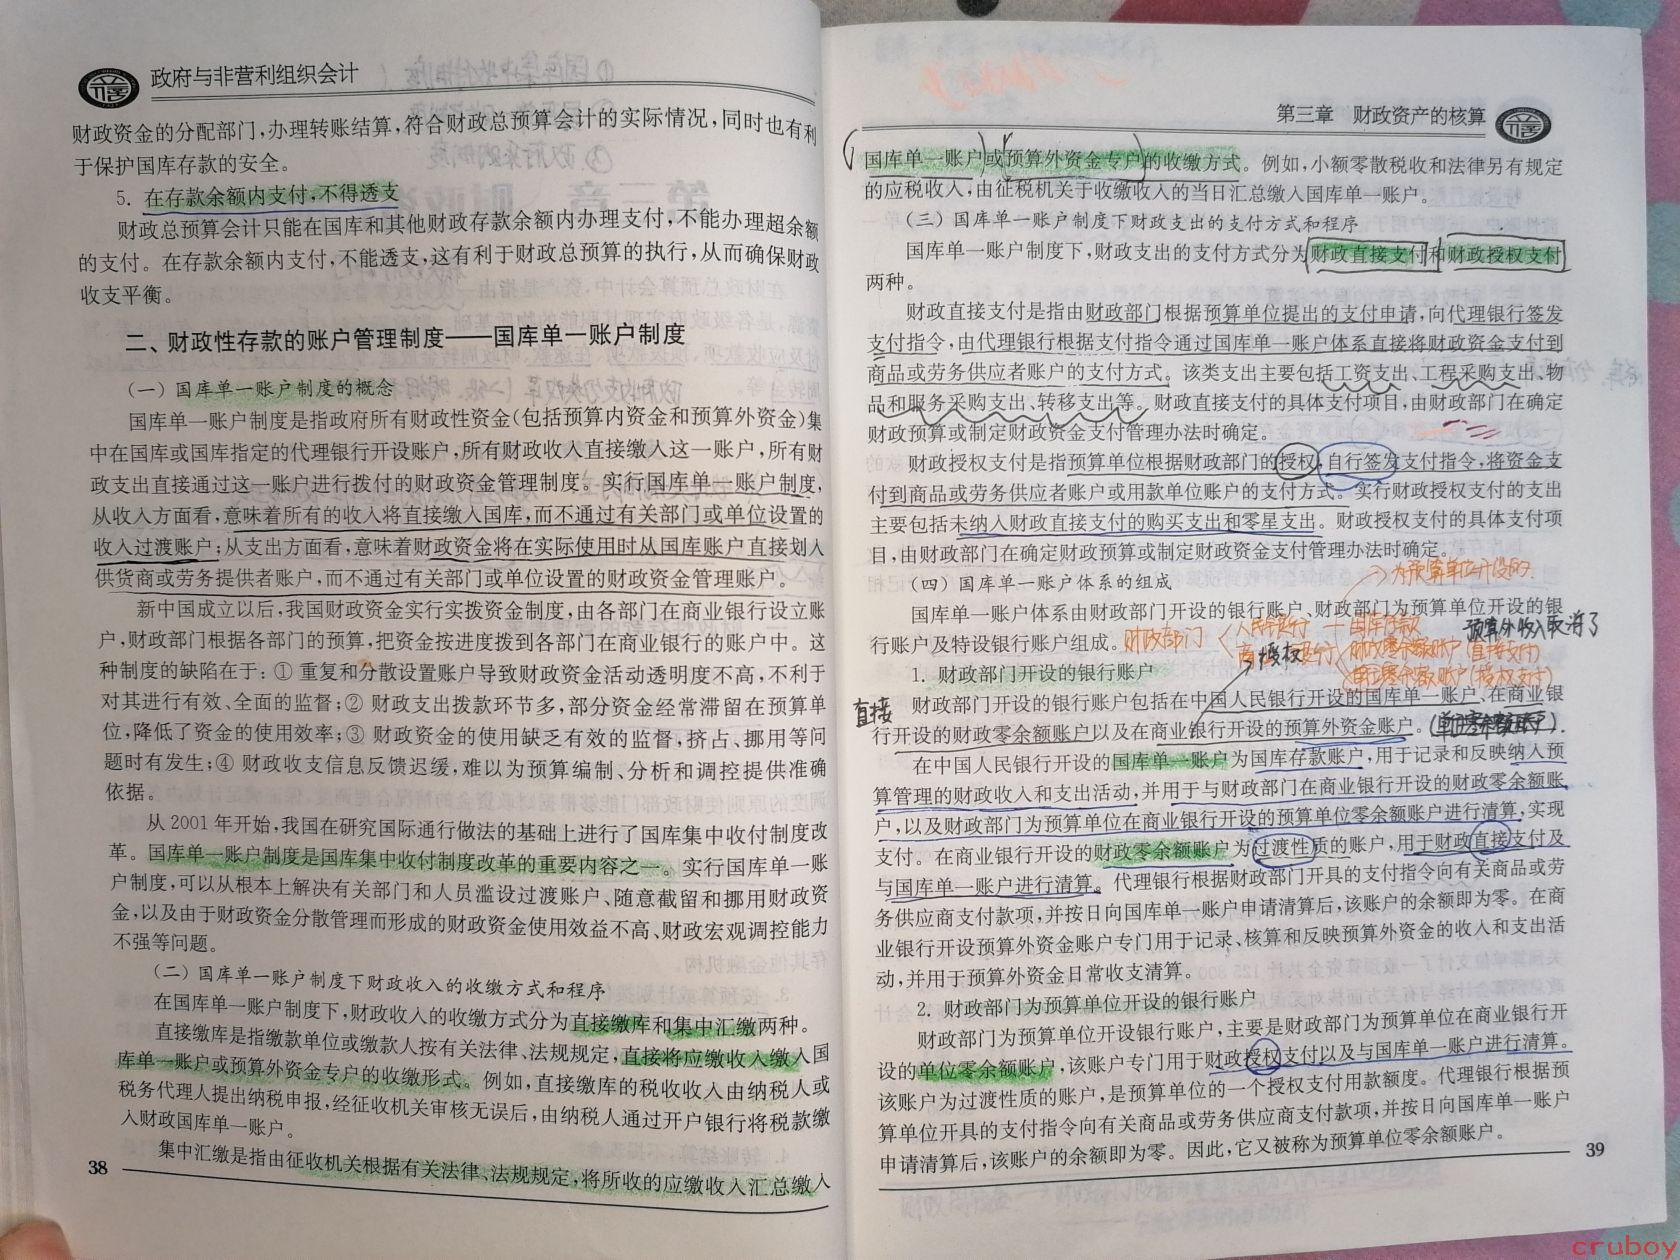 政府与非营利组织会计
财政资金的分配部门,办理转账结算,符合财政总预算会计的实际情况,同时也有利
于保护国库存款的安全。
5. 在存款余额内支付,不得透支
财政总预算会计只能在国库和其他财政存款余额内办理支付,不能办理超余额
的支付。在存款余额内支付,不能透支,这有利于财政总预算的执行,从而确保财政
收支平衡。
二、财政性存款的账户管理制度——国库单一账户制度
(一) 国库单一账户制度的概念
国库单一账户制度是指政府所有财政性资金(包括预算内资金和预算外资金)集
中在国库或国库指定的代理银行开设账户,所有财政收入直接缴入这一账户,所有财
政支出直接通过这一账户进行拨付的财政资金管理制度。实行国库单一账户制度,
从收入方面看,意味着所有的收入将直接缴入国库,而不通过有关部门或单位设置的
收入过渡账户;从支出方面看,意味着财政资金将在实际使用时从国库账户直接划入
供货商或劳务提供者账户,而不通过有关部门或单位设置的财政资金管理账户。
新中国成立以后,我国财政资金实行实拨资金制度,由各部门在商业银行设立账
户,财政部门根据各部门的预算,把资金按进度拨到各部门在商业银行的账户中。这
种制度的缺陷在于:① 重复和分散设置账户导致财政资金活动透明度不高,不利于
对其进行有效、全面的监督;② 财政支出拨款环节多,部分资金经常滞留在预算单
位,降低了资金的使用效率;③ 财政资金的使用缺乏有效的监督,挤占、挪用等问
题时有发生;④ 财政收支信息反馈迟缓,难以为预算编制、分析和调控提供准确
依据。
从 2001 年开始,我国在研究国际通行做法的基础上进行了国库集中收付制度改
革。国库单一账户制度是国库集中收付制度改革的重要内容之一。实行国库单一账
户制度,可以从根本上解决有关部门和人员滥设过渡账户、随意截留和挪用财政资
金,以及由于财政资金分散管理而形成的财政资金使用效益不高、财政宏观调控能力
不强等问题。
(二) 国库单一账户制度下财政收入的收缴方式和程序
在国库单一账户制度下,财政收入的收缴方式分为直接缴库和集中汇缴两种。
直接缴库是指缴款单位或缴款人按有关法律、法规规定,直接将应缴收入缴入国
库单一账户或预算外资金专户的收缴形式。例如,直接缴库的税收收入由纳税人或
税务代理人提出纳税申报,经征收机关审核无误后,由纳税人通过开户银行将税款缴
入财政国库单一账户。
集中汇缴是指由征收机关根据有关法律、法规规定,将所收的应缴收入汇总缴入
38
第三章 财政资产的核算
国库单一账户或预算外资金专户的收缴方式。例如,小额零散税收和法律另有规定
的应税收入,由征税机关于收缴收入的当日汇总缴入国库单一账户。
(三) 国库单一账户制度下财政支出的支付方式和程序
国库单一账户制度下,财政支出的支付方式分为财政直接支付和财政授权支付
两种。
财政直接支付是指由财政部门根据预算单位提出的支付申请,向代理银行签发
支付指令,由代理银行根据支付指令通过国库单一账户体系直接将财政资金支付到
商品或劳务供应者账户的支付方式。该类支出主要包括工资支出、工程采购支出、物
品和服务采购支出、转移支出等。财政直接支付的具体支付项目,由财政部门在确定
财政预算或制定财政资金支付管理办法时确定。
财政授权支付是指预算单位根据财政部门的授权,自行签发支付指令,将资金支
付到商品或劳务供应者账户或用款单位账户的支付方式。实行财政授权支付的支出
主要包括未纳入财政直接支付的购买支出和零星支出。财政授权支付的具体支付项
目,由财政部门在确定财政预算或制定财政资金支付管理办法时确定。
为预算单位开设的.
(四) 国库单一账户体系的组成
国库单一账户体系由财政部门开设的银行账户、财政部门为预算单位开设的银
行账户及特设银行账户组成。
财政部门 人民银行 — 国库存款
预算外收入取消了
授权
财政零余额账户(直接支付)
单位零余额账户(授权支付)
1. 财政部门开设的银行账户
直接
财政部门开设的银行账户包括在中国人民银行开设的国库单一账户、在商业银
行开设的财政零余额账户以及在商业银行开设的预算外资金账户。
在中国人民银行开设的国库单一账户为国库存款账户,用于记录和反映纳入预
算管理的财政收入和支出活动,并用于与财政部门在商业银行开设的财政零余额账
户,以及财政部门为预算单位在商业银行开设的预算单位零余额账户进行清算,实现
支付。在商业银行开设的财政零余额账户为过渡性质的账户,用于财政直接支付及
与国库单一账户进行清算。代理银行根据财政部门开具的支付指令向有关商品或劳
务供应商支付款项,并按日向国库单一账户申请清算后,该账户的余额即为零。在商
业银行开设预算外资金账户专门用于记录、核算和反映预算外资金的收入和支出活
动,并用于预算外资金日常收支清算。
2. 财政部门为预算单位开设的银行账户
财政部门为预算单位开设银行账户,主要是财政部门为预算单位在商业银行开
设的单位零余额账户,该账户专门用于财政授权支付以及与国库单一账户进行清算。
该账户为过渡性质的账户,是预算单位的一个授权支付用款额度。代理银行根据预
算单位开具的支付指令向有关商品或劳务供应商支付款项,并按日向国库单一账户
申请清算后,该账户的余额即为零。因此,它又被称为预算单位零余额账户。
39
cruboy